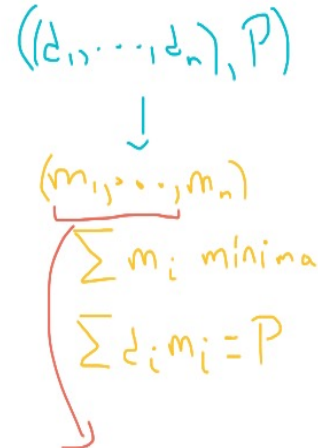 ((d₁,...,dₙ),P)
(m₁,...,mₙ)
∑ mᵢ mínima
∑ dᵢmᵢ = P